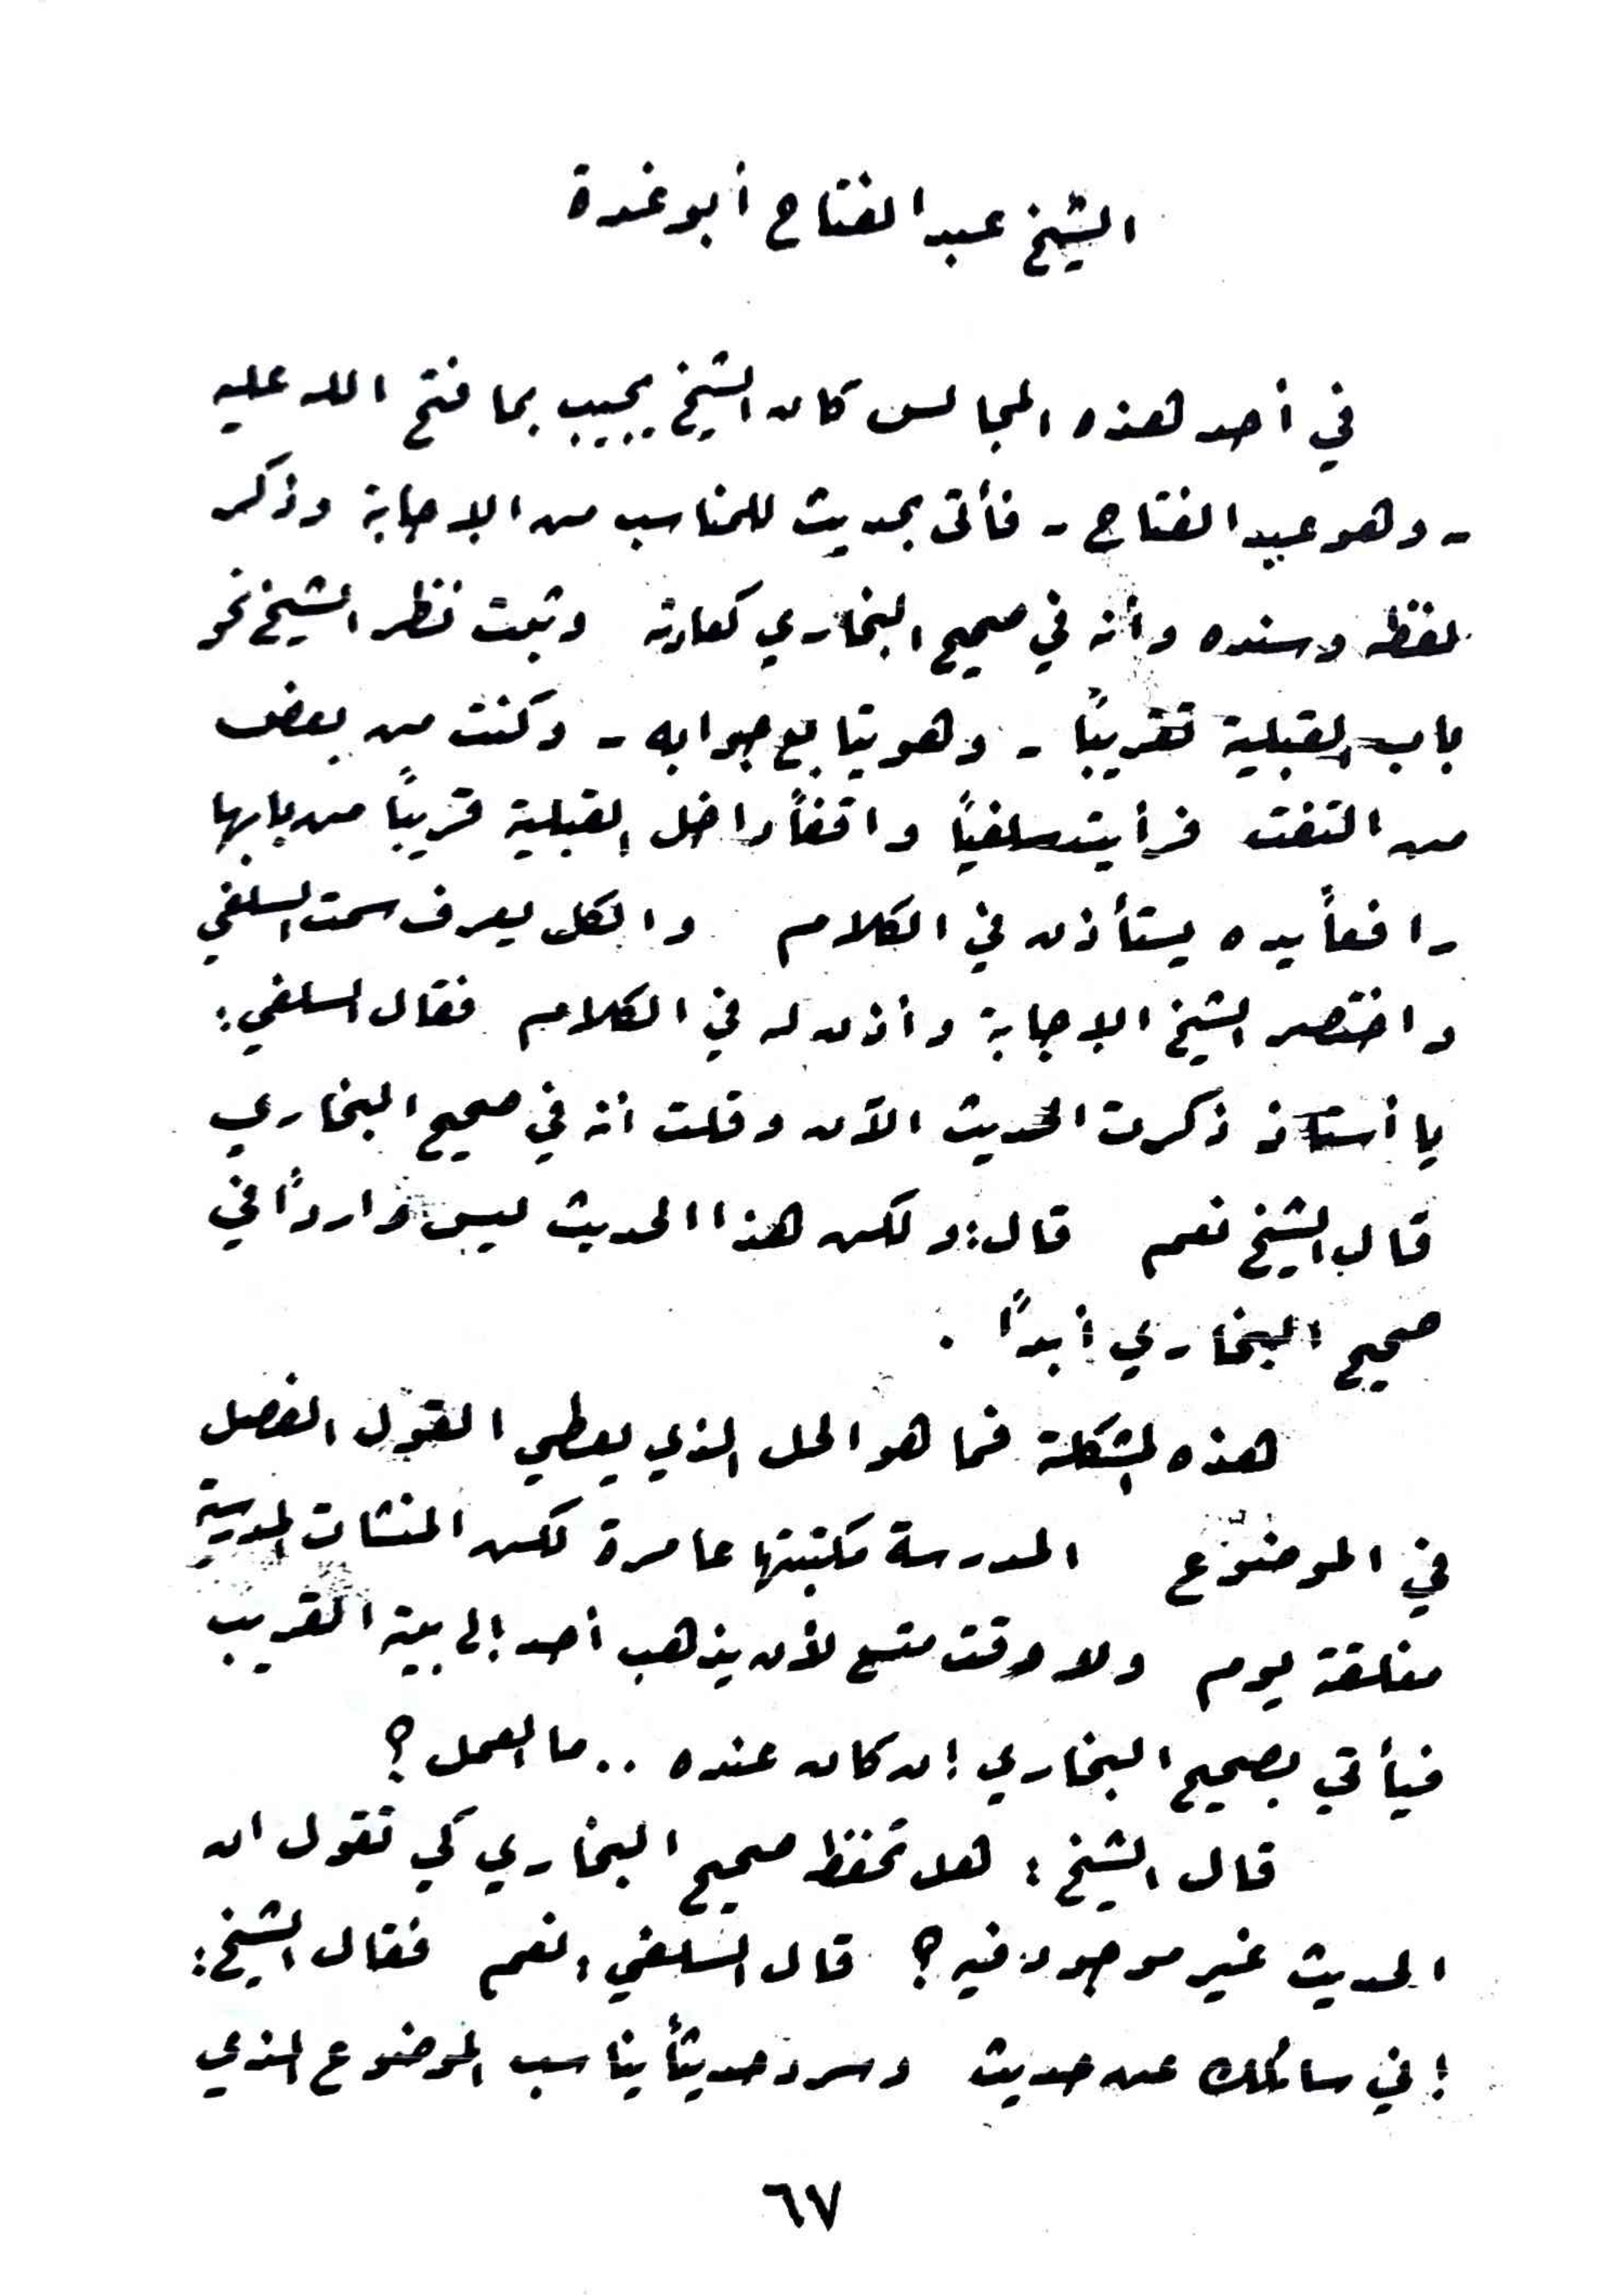 الشيخ عبد الفتاح أبو غدة
في أحد هذه المجالس كان الشيخ يجيب بما فتح الله عليه
- وهو عبد الفتاح - فأتى بحديث للمناسب من الإجابة وذكر
لفظه وسنده وأنه في صحيح البخاري كعادته وثبت نظر الشيخ نحو
باب القبلية تقريباً - وهو يتابع جوابه - وكنت من بعض
من التفت فرأيت سلفياً واقفاً داخل القبلية قريباً من بابها
رافعاً يده يستأذن في الكلام والكل يعرف سمت السلفي
واختصر الشيخ الإجابة وأذن له في الكلام فقال السلفي :
يا أستاذ ذكرت الحديث الآن وقلت انه في صحيح البخاري
قال الشيخ نعم قال : ولكن هذا الحديث ليس وارداً في
صحيح البخاري أبداً .
هذه المشكلة فما هو الحل الذي يعطي القول الفصل
في الموضوع المدرسة مكتبتها عامرة لكن المنشآت المدرسية
مغلقة يوم ولا وقت متسع لأن يذهب أحد إلى بيته القريب
فيأتي بصحيح البخاري إن كان عنده .. ما العمل ؟
قال الشيخ : هل تحفظ صحيح البخاري كي تقول ان
الحديث غير موجود فيه ؟ قال السلفي : نعم فقال الشيخ :
إني سائلك عن حديث وسرد حديثاً يناسب الموضوع الذي
٦٧